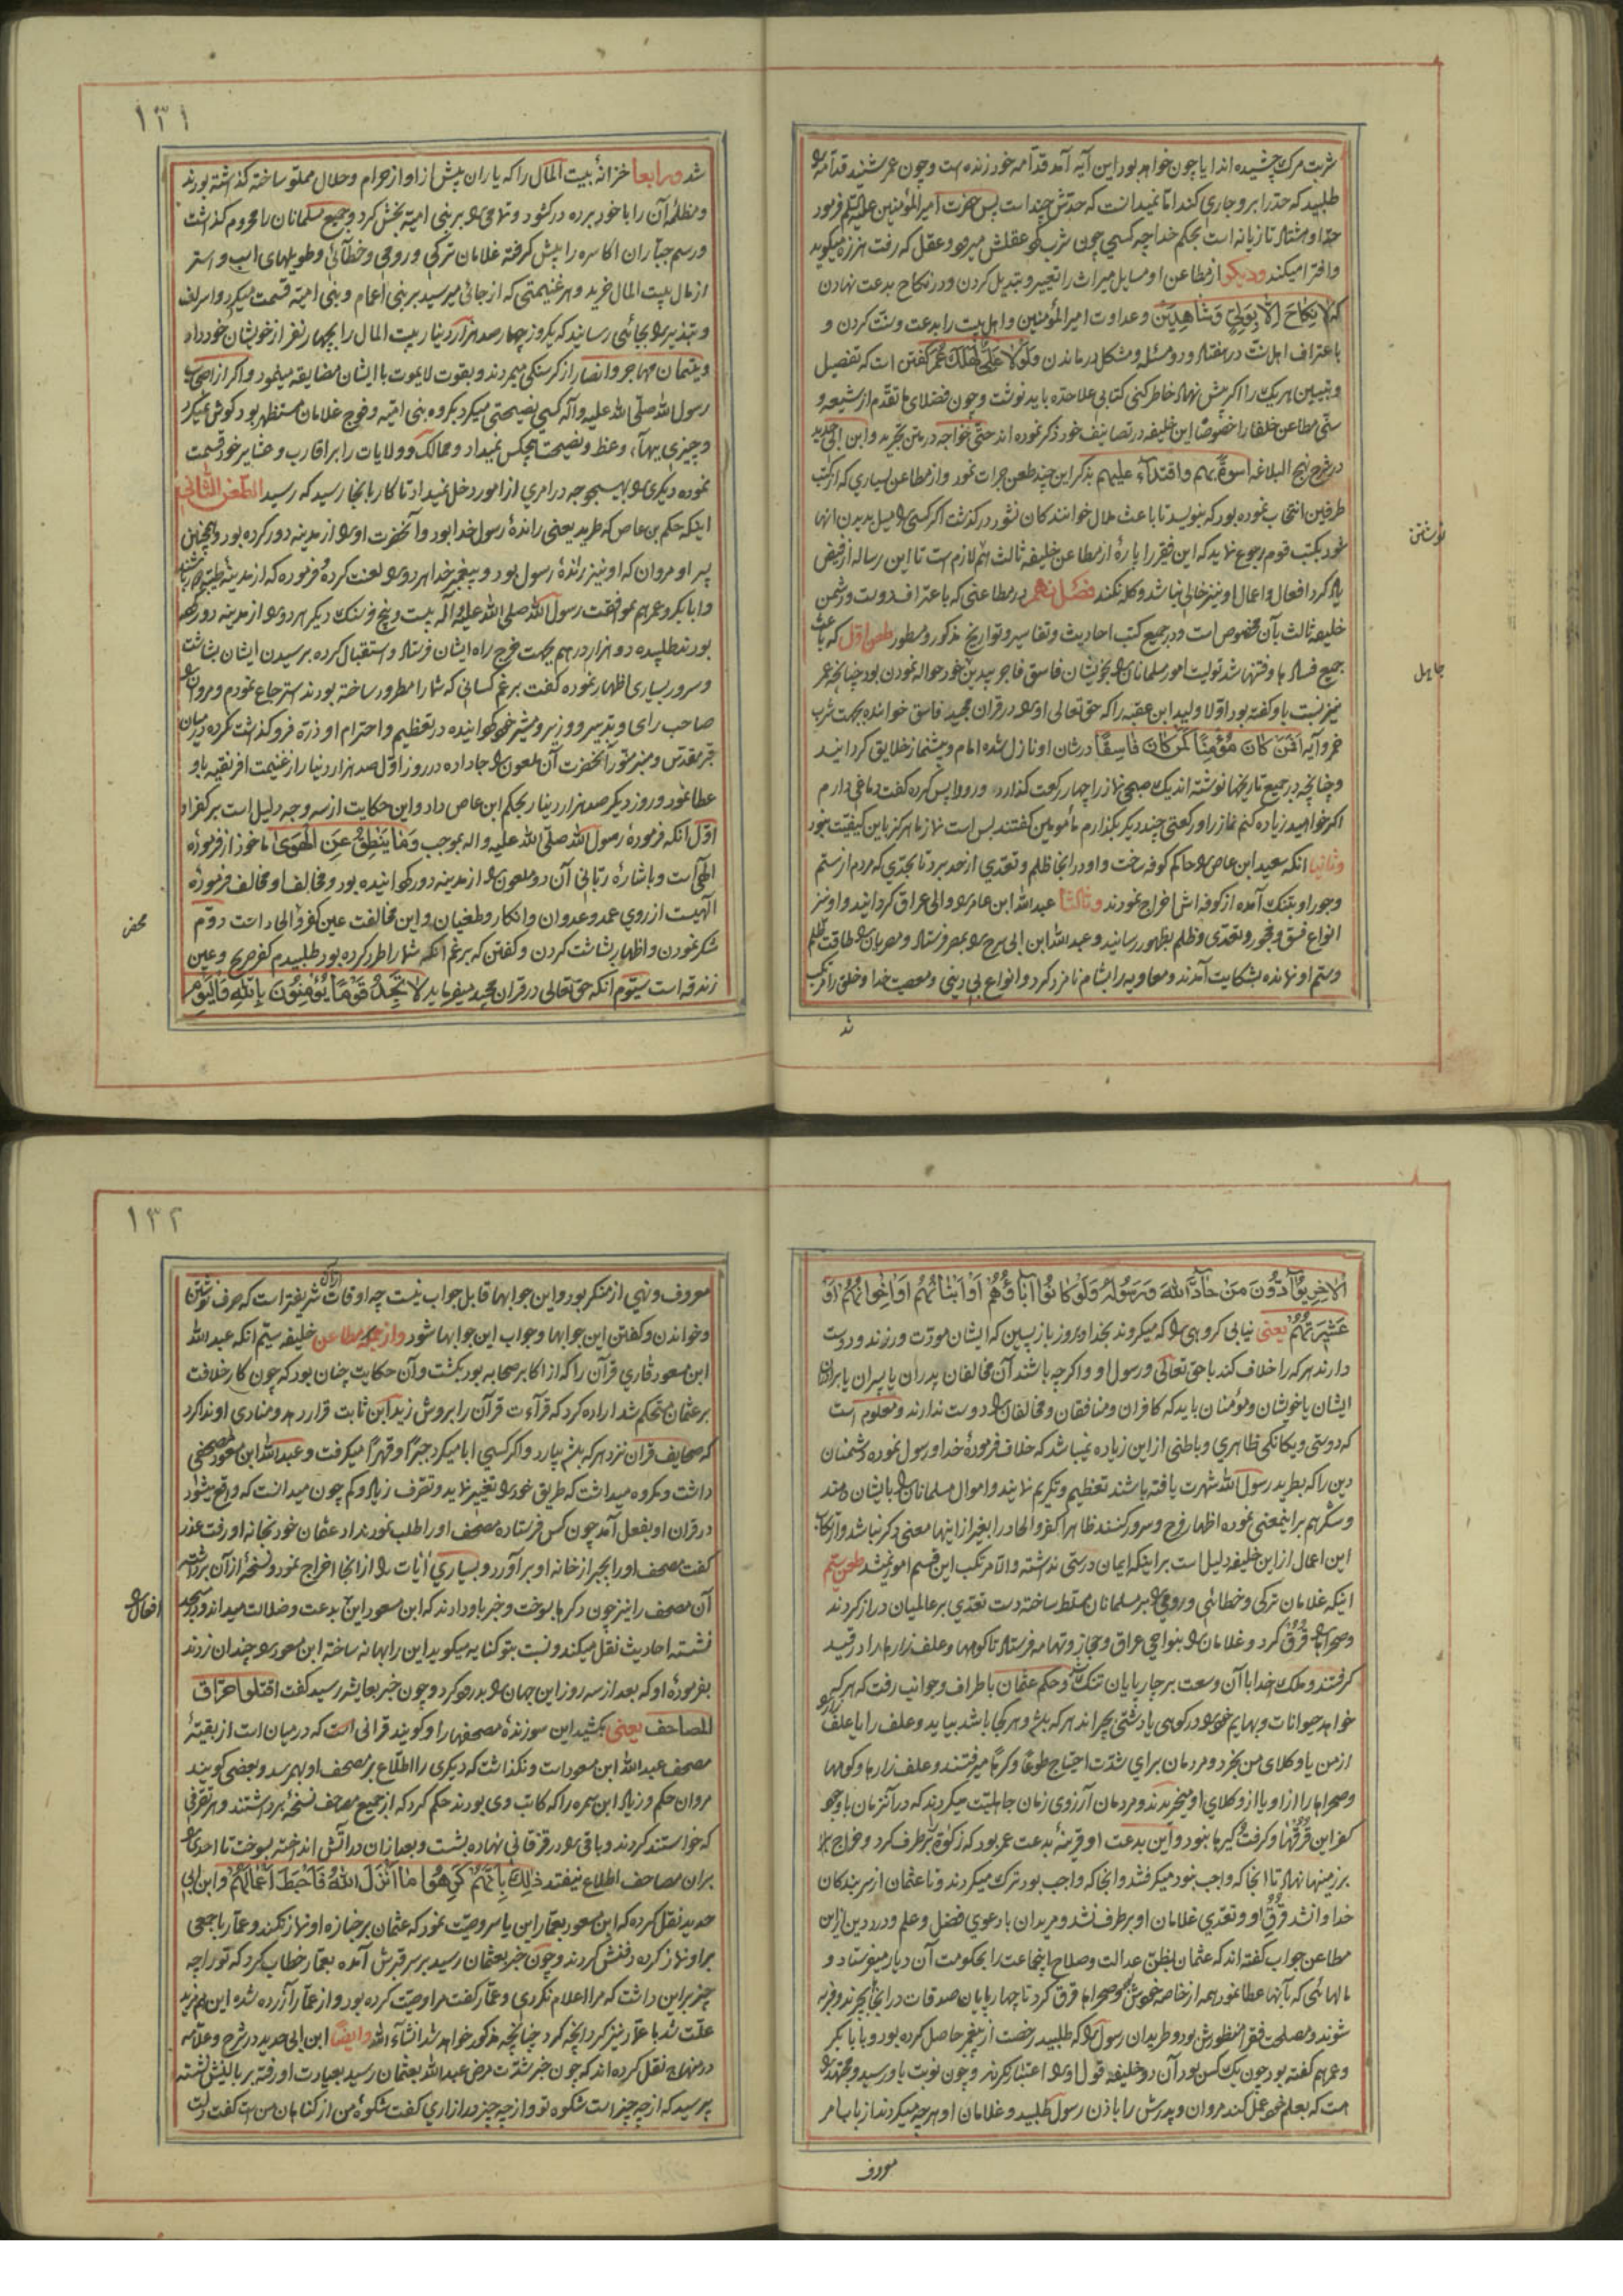 شربت مرک چشیده اند ایا چون خواهد بود این آیه آمد قدامه خود زنده است و چون عمر شنید قدامه را
طلبید که حد را بر و جاری کند اما نمیدانست که حدش چند است پس حضرت امیر المؤمنین علیه السلم فرمود
حد او هشتاد تازیانه است بحکم خدا چه کسی چون شرب کرد عقلش میرود و عقل که رفت هرزه میکوید
و افترا میکند و دیکر از مطاعن او مسایل میراث را تغییر و تبدیل کردن و در نکاح بدعت نهادن
که لا نکاح الا بولی و شاهدین و عداوت امیر المؤمنین و اهل بیت را بدعت و سنت کردن و
باعتراف اهل سنت در هفتاد و دو مسئله و مشکل در ماندن و لولا علی لهلک عمر کفتن است که تفصیل
و تبیین هر یک را اکر پیش نهاد خاطر کنی کتابی علاحده باید نوشت و چون فضلای ما تقدم از شیعه و
سنی مطاعن خلفا را خصوصا این خلیفه در تصانیف خود ذکر نموده اند حتی خواجه در متن تجرید و ابن ابی حدید
در شرح نهج البلاغه اسوة بهم و اقتداء علیهم بذکر این چند طعن جرات نمود و از مطاعن بسیاری که از کتب
طرفین انتخاب نموده بود که بنویسد تا باعث ملال خوانندکان نشود در کذشت اکر کسی را میل بدیدن انها
شود بکتب قوم رجوع نماید که این فقیر را پارۀ از مطاعن خلیفه ثالث هم لازم است تا این رساله از فیض
یاد کرد افعال و اعمال او نیز خالی نباشد و کله نکند فصل نهم در مطاعنی که باعتراف دوست و دشمن
خلیفه ثالث بآن مخصوص است و در جمیع کتب احادیث و تفاسیر و تواریخ مذکور و مسطور طعن اول که باعث
جمیع فساد ها و فتنها شد تولیت امور مسلمانان را بخویشان فاسق فاجر بیدین خود حواله نمودن بود چنانچه عمر
نیز نسبت باو کفته بود اولا ولید ابن عقبه را که حق تعالی او را در قران مجید فاسق خوانده بجهت شرب
خمر و آیه افمن کان مؤمنا کمن کان فاسقا در شان او نازل شده امام و پیشنماز خلایق کردانید
و چنانچه در جمیع تاریخها نوشته اند یک صبحی نماز را چهار رکعت کذارد و رو واپس کرده کفت دماغی دارم
اکر خواهید زیاده کنم نماز را و رکعتی چند دیکر بکذارم مأمومین کفتند بس است نماز ما هرکز باین کیفیت نبود
و ثانیا انکه سعید ابن عاص را حاکم کوفه ساخت و او در انجا ظلم و تعدی از حد برد تا بحدی که مردم از ستم
و جور او بتنک آمده از کوفه اش اخراج نمودند و ثالثا عبد الله ابن عامر را والی عراق کردانید و او نیز
انواع فسق و فجور و تعدی و ظلم بظهور رسانید و عبد الله ابن ابی سرح را بمصر فرستاد و مصریان را طاقت ظلم
و ستم او نمانده بشکایت آمدند و معاویه را بشام نامزد کرد و انواع بی دینی و معصیت خدا و خلق را مرتکب
شد
نوشتن
جاهل
۱۳۱
شد و رابعا خزانۀ بیت المال را که یاران پیش از او از حرام و حلال مملو ساخته کذاشته بودند
و مظلمۀ آن را با خود برده در کشود و تمامی را بر بنی امیه بخش کرد و جمیع مسلمانان را محروم کذاشت
و رسم جباران اکاسره را پیش کرفته غلامان ترکی و رومی و خطائی و طویلهای اسب و استر
از مال بیت المال خرید و هر غنیمتی که از جائی میرسید بر بنی اعمام و بنی امیه قسمت میکرد و اسراف
و تبذیر را بجائی رسانید که یکروز چهار صد هزار دینار بیت المال را بچهار نفر از خویشان خود داد
و یتیمان مهاجر و انصار از کرسنکی میمردند و بقوت لایموت با ایشان مضایقه مینمود و اکر از اصحاب
رسول الله صلی الله علیه و آله کسی نصیحتی میکرد بکروه بنی امیه و فوج غلامان مستظهر بود کوش نمیکرد
و چیزی بهآء وعظ و نصیحت هیچکس نمیداد و ممالک و ولایات را بر اقارب و عشایر خود قسمت
نموده دیکری را بهیچوجه در امری از امور دخل نمیداد تا کار بانجا رسید که رسید الطعن الثانی
اینکه حکم بن عاص که طرید یعنی راندۀ رسول خدا بود و آنحضرت او را از مدینه دور کرده بود و همچنین
پسر او مروان که او نیز راندۀ رسول بود و پیغمبر خدا هر دو را لعنت کرده و فرموده که از مدینۀ طیبه
و ابا بکر و عمر هم بموافقت رسول الله صلی الله علیه و آله بیست و پنج فرسنک دیکر هر دو را از مدینه دور کرده
بودند طلبیده دو هزار درهم بجهت خرج راه ایشان فرستاد و استقبال کرده برسیدن ایشان بشاشت
و سرور بسیاری اظهار نموده کفت برغم کسانی که شما را مطرود ساخته بودند استرجاع نمودم و مروان را
صاحب رای و تدبیر و وزیر و مشیر خود کردانیده در تعظیم و احترام او ذرۀ فرو کذاشت نکرده در میان
قبر مقدس و منبر منور آنحضرت آن ملعون را جا داده در روز اول صد هزار دینار از غنیمت افریقیه باو
عطا نمود و روز دیکر صد هزار دینار بحکم ابن عاص داد و این حکایت از سه وجه دلیل است بر کفر او
اول انکه فرمودۀ رسول الله صلی الله علیه و اله بموجب و ما ینطق عن الهوی ماخوذ از فرمودۀ
الهی است و باشارۀ ربانی آن دو ملعون را از مدینه دور کردانیده بود و مخالف او مخالف فرمودۀ
الهیست از روی عمد و عدوان و انکار و طغیان و این مخالفت عین کفر و الحاد است دوم
شکر نمودن و اظهار بشاشت کردن و کفتن که برغم انکه شما را طرد کرده بود طلبیدم کفر صریح و عین
زندقه است سیوم انکه حق تعالی در قران مجید میفرماید لا تجد قوما یؤمنون بالله و الیوم
محض
الاخر یوآدون من حآد الله و رسوله و لو کانوا آباؤهم او ابناءهم او اخوانهم او
عشیرتهم یعنی نیابی کروهی را که میکروند بخدا و بروز باز پسین که ایشان مودت ورزند و دوست
دارند هر که را خلاف کند با حق تعالی و رسول او و اکرچه باشند آن مخالفان پدران یا پسران یا برادران
ایشان یا خویشان و مؤمنان باید که کافران و منافقان و مخالفان را دوست ندارند و معلوم است
که دوستی و یکانکی ظاهری و باطنی از این زیاده نمیباشد که خلاف فرمودۀ خدا و رسول نموده دشمنان
دین را که بطرید رسول الله شهرت یافته باشند تعظیم و تکریم نمایند و اموال مسلمانان را بایشان دهند
و شکر هم براینمعنی نموده اظهار فرح و سرور کنند ظاهرا کفر و الحاد را بغیر از اینها معنی دیکر نباشد و ارتکاب
این اعمال از این خلیفه دلیل است بر اینکه ایمان درستی نداشته و الا مرتکب این قسم امور نمیشد طعن سیم
اینکه غلامان ترکی و خطائی و رومی را بر مسلمانان مسلط ساخته دست تعدی بر عالمیان دراز کردند
و صحراها را قرق کرد و غلامان را بنواحی عراق و حجاز و تهامه فرستاد تا کوهها و علف زارها را در قید
کرفتند و ملک خدا با آن وسعت بر چارپایان تنک شد و حکم عثمان باطراف و جوانب رفت که هر که
خواهد حیوانات و بهایم خود را در کوهی یا دشتی بچراند هر که باشد و هر کجا باشد بیاید و علف را یا علف زار را
از من یا وکلای من بخرد و مردمان برای شدت احتیاج طوعا و کرها میرفتند و علف زارها و کوهها
و صحراها را از او یا از وکلای او میخریدند و مردمان آرزوی زمان جاهلیت میکردند که در آنزمان با وجود
کفر این قرقها و کرفت کیرها نبود و این بدعت او قرینۀ بدعت عمر بود که زکوة را برطرف کرد و خراج را
بر زمینها نهاد تا انجا که واجب نبود میکرفتند و انجا که واجب بود ترک میکردند و تا عثمان از سر بندکان
خدا وا نشد قرق او و تعدی غلامان او برطرف نشد و مریدان با دعوی فضل و علم و درد دین از این
مطاعن جواب کفته اند که عثمان بظن عدالت و صلاح اینجماعت را بحکومت آن دیار میفرستاد و
مالهائی که بآنها عطا نمود همه از خاصه خودش بود و صحراها قرق کرد تا چهارپایان صدقات در اینجا بچرند و فربه
شوند و مصلحت فقرا منظورش بود و طریدان رسول را که طلبید رخصت از پیغمبر حاصل کرده بود و با ابا بکر
و عمر هم کفته بود چون یک کس بود آن دو خلیفه قول او را اعتبار نکردند و چون نوبت باو رسید و مجتهد را
هست که بعلم خود عمل کند مروان و پدرش را باذن رسول طلبید و غلامان او هر چه میکردند از باب امر
معروف
۱۳۲
معروف و نهی از منکر بود و این جوابها قابل جواب نیست چه اوقات ازان شریفتر است که صرف نوشتن
و خواندن و کفتن این جوابها و جواب این جوابها شود و از جمله مطاعن خلیفه سیم انکه عبد الله
ابن مسعود قاری قرآن را که از اکابر صحابه بود بکشت و آن حکایت چنان بود که چون کار خلافت
بر عثمان مستحکم شد اراده کرد که قرآءت قرآن را بروش زید ابن ثابت قرار دهد و منادی او ندا کرد
که صحایف قران نزد هر که باشد بیارد و اکر کسی ابا میکرد جبرا و قهرا میکرفت و عبد الله ابن مسعود مصحفی
داشت و مکروه میداشت که طریق خود را تغییر نماید و تصرف زیاد و کم چون میدانست که واقع میشود
در قران او بفعل آمد چون کس فرستاده مصحف او را طلب نمود نداد عثمان خود بخانه او رفت عذر
کفت مصحف او را بجبر از خانه او بر آورد و بسیاری ایات را از انجا اخراج نمود و نسخۀ از آن برداشته
آن مصحف را نیز چون دکرها بسوخت و خبر باو دادند که ابن مسعود این را بدعت و ضلالت میداند و در مسجد
نشسته احادیث نقل میکند و نسبت بتو کنایه میکوید این را بهانه ساخته ابن مسعود را چندان زدند
بفرمودۀ او که بعد از سه روز این جهان را بدرود کرد و چون خبر بعایشه رسید کفت اقتلوا حراق
المصاحف یعنی بکشید این سوزندۀ مصحفها را و کویند قرانی که در میان است از بقیۀ
مصحف عبد الله ابن مسعود است و نکذاشت که دیکری را اطلاع بر مصحف او بهم رسد و بعضی کویند
مروان حکم و زیاد ابن سمره را که کاتب وی بودند حکم کرد که از جمیع مصاحف نسخه برداشتند و هر تصرفی
که خواستند کردند و باقی را در قزقانی نهاده بشست و بعد ازان در آتش انداخته بسوخت تا احدی را
بران مصاحف اطلاع نیفتد ذلک بانهم کرهوا ما انزل الله فاحبط اعمالهم و ابن ابی
حدید نقل کرده که ابن مسعود بعمار ابن یاسر وصیت نمود که عثمان بر جنازه او نماز نکند و عمار با جمعی
بر او نماز کرده دفنش کردند و چون خبر بعثمان رسید بر سر قبرش آمده بعمار خطاب کرد که تو را چه
چیز براین داشت که مرا اعلام نکردی و عمار کفت مرا وصیت کرده بود و از عمار آزرده شده این هم مزید
علت شد با عمار نیز کرد انچه کرد چنانچه مذکور خواهد شد انشآء الله و ایضا ابن ابی حدید در شرح و علامه
در منهاج نقل کرده اند که چون خبر شدت مرض عبد الله بعثمان رسید بعیادت او رفته بر بالینش نشسته
پرسید که از چه چیز است شکوه تو و از چه چیز در ازاری کفت شکوۀ من از کناهان من است کفت دلت
افعال را